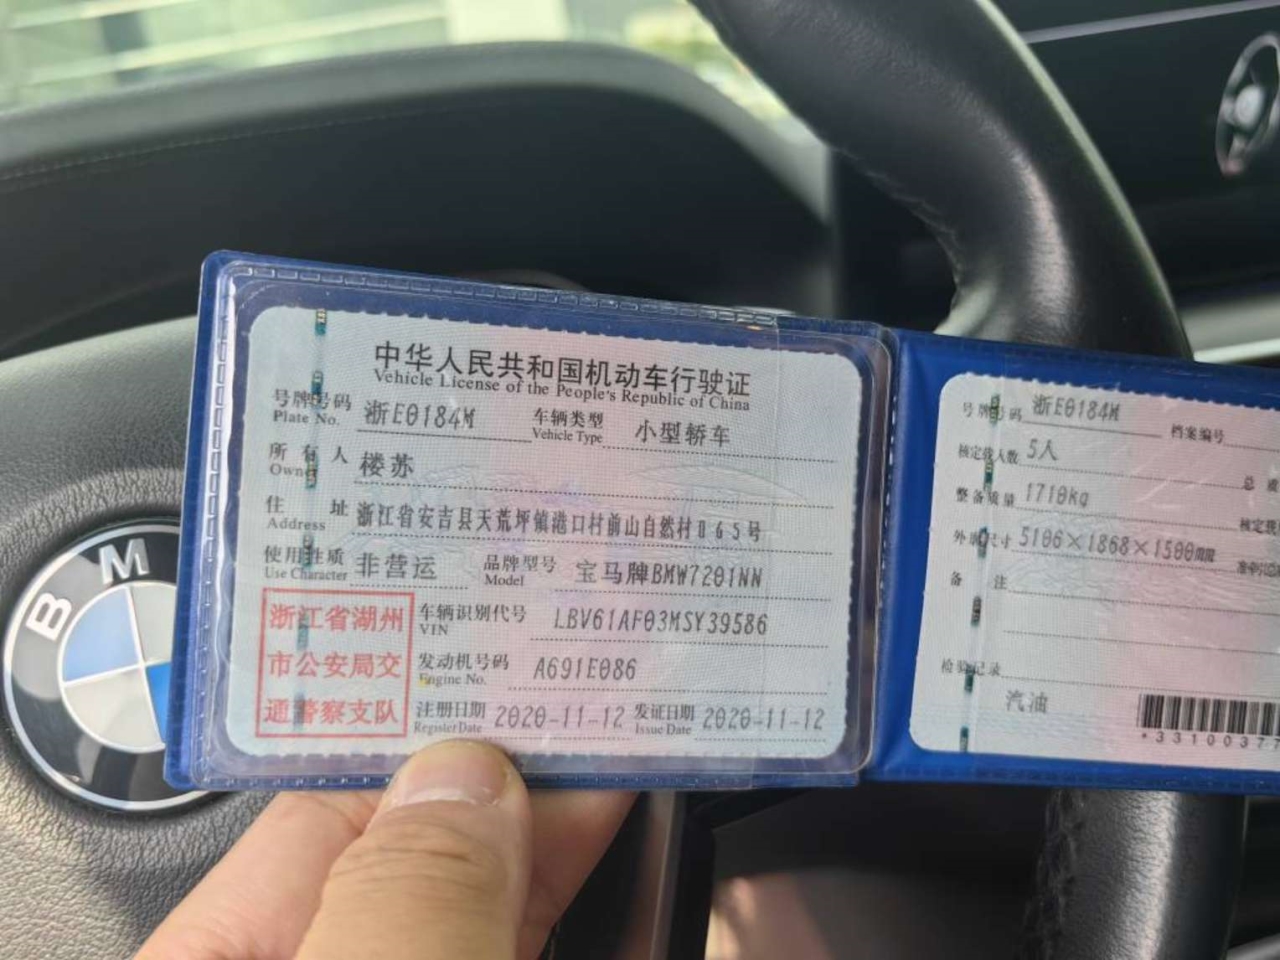 中华人民共和国机动车行驶证
Vehicle License of the People's Republic of China
号牌号码 浙E0184M 车辆类型 小型轿车
Plate No. Vehicle Type
所有人 楼苏
Owner
住址 浙江省安吉县天荒坪镇港口村前山自然村065号
Address
使用性质 非营运 品牌型号 宝马牌BMW7201NN
Use Character Model
浙江省湖州
市公安局交
通警察支队
车辆识别代号 LBV61AF03MSY39586
VIN
发动机号码 A691E086
Engine No.
注册日期 2020-11-12 发证日期 2020-11-12
Register Date Issue Date
号牌号码 浙E0184M 档案编号
核定载人数 5人 总
整备质量 1710kg 核定
外廓尺寸 5106×1868×1500mm
备注
检验记录
汽油
*3310037
BM